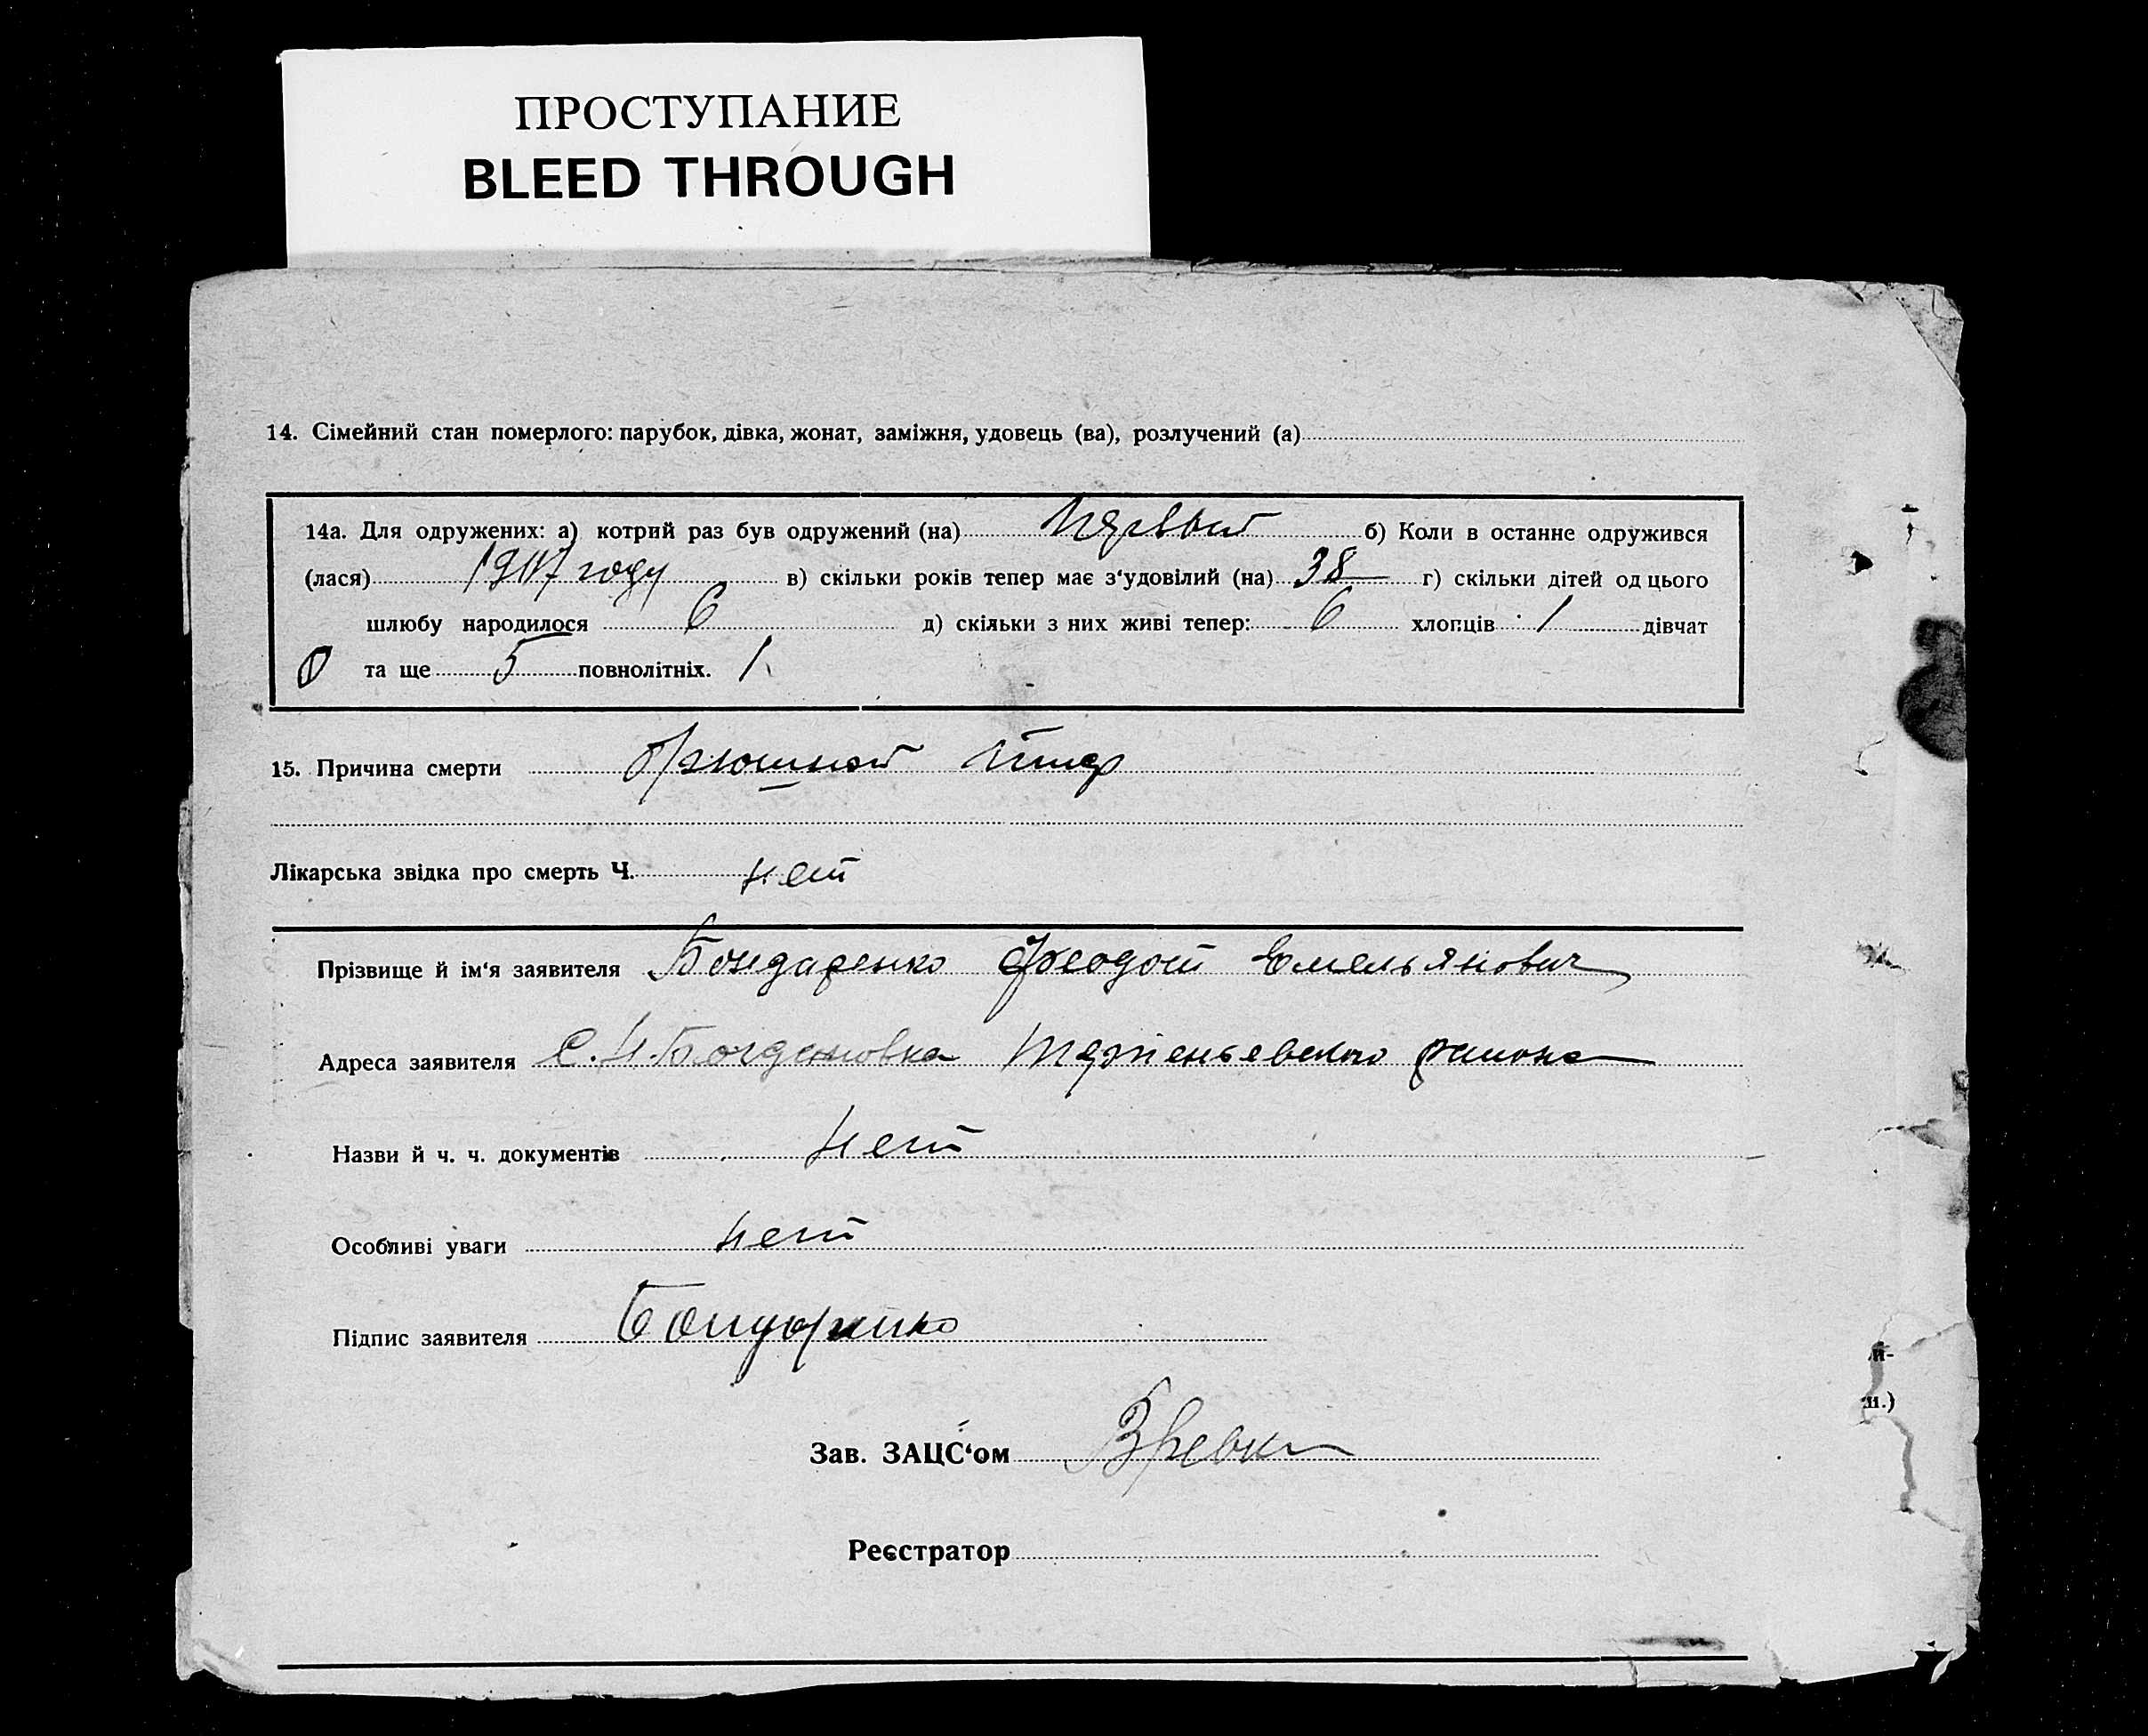 ПРОСТУПАНИЕ
BLEED THROUGH
14. Сімейний стан померлого: парубок, дівка, жонат, заміжня, удовець (ва), розлучений (а)
14а. Для одружених: а) котрий раз був одружений (на) первый б) Коли в останне одружився
(лася) году в) скільки років тепер має з‘удовілий (на) 38 г) скільки дітей од цього
шлюбу народилося 6 д) скільки з них живі тепер: 6 хлопців 1 дівчат
0 та ще 5 повнолітніх. 1
15. Причина смерти брюшной тиф
Лікарська звідка про смерть Ч. нет
Прізвище й ім‘я заявителя Бондаренко Феодот Емельянович
Адреса заявителя С. Н. Богдановка района
Назви й ч. ч. документів нет
Особливі уваги нет
Підпис заявителя Бондаренко
Зав. ЗАЦС‘ом
Реєстратор
и.)